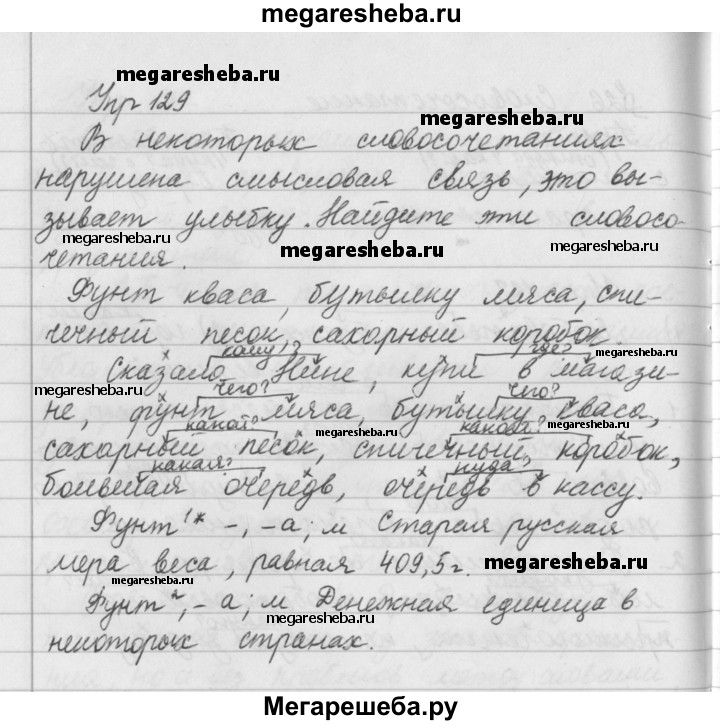 megaresheba.ru
megaresheba.ru
Упр 129
megaresheba.ru
В некоторых словосочетаниях
нарушена смысловая связь, это вы-
зывает улыбку. Найдите эти словосо-
megaresheba.ru megaresheba.ru megaresheba.ru
четания.
Фунт кваса, бутылку мяса, спи-
чечный песок, сахарный коробок.
кому? где?
megaresheba.ru
Сказала Нине, купи в магази-
megaresheba.ru чего? чего?
не, фунт мяса, бутылку кваса,
какой? megaresheba.ru какой? megaresheba.ru
сахарный песок, спичечный коробок,
какая? куда?
большая очередь, очередь в кассу.
Фунт 1* -, -а; м Старая русская
мера веса, равная 409,5 г. megaresheba.ru
megaresheba.ru
Фунт 2, -а; м Денежная единица в
megaresheba.ru megaresheba.ru
некоторых странах.
Мегарешеба.ру